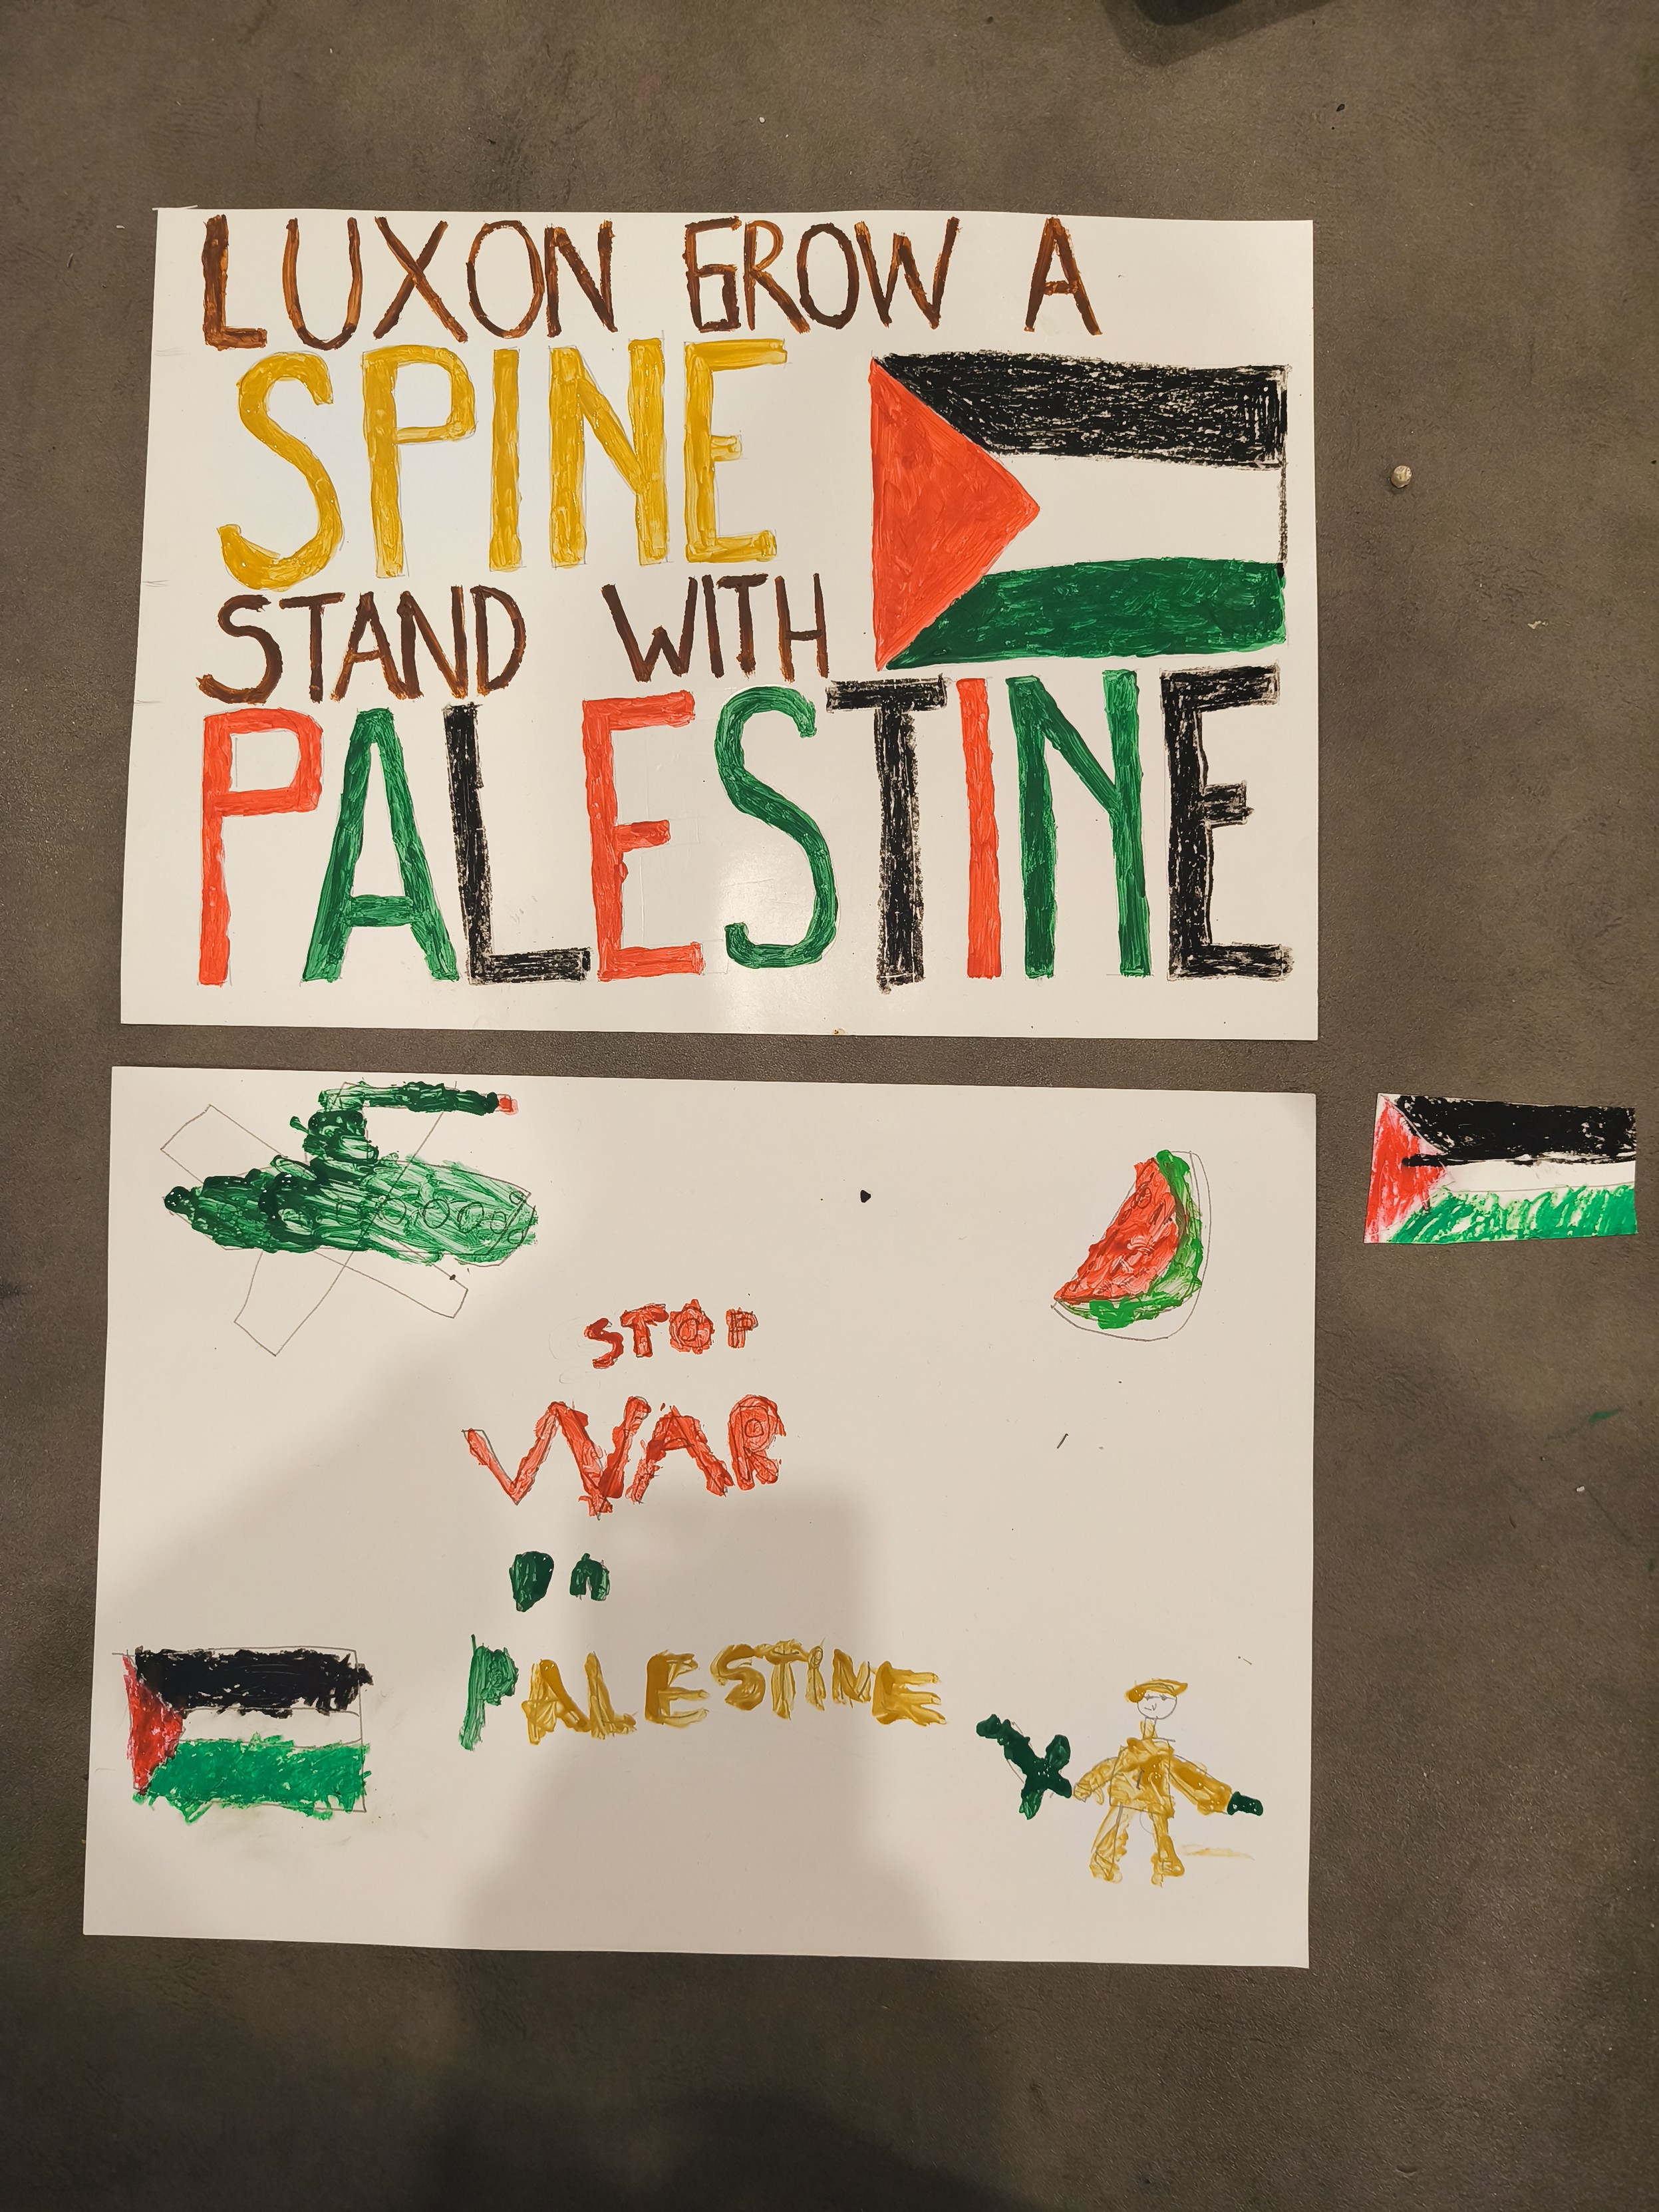 LUXON GROW A
SPINE
STAND WITH
PALESTINE
STOP
WAR
On
PALESTINE